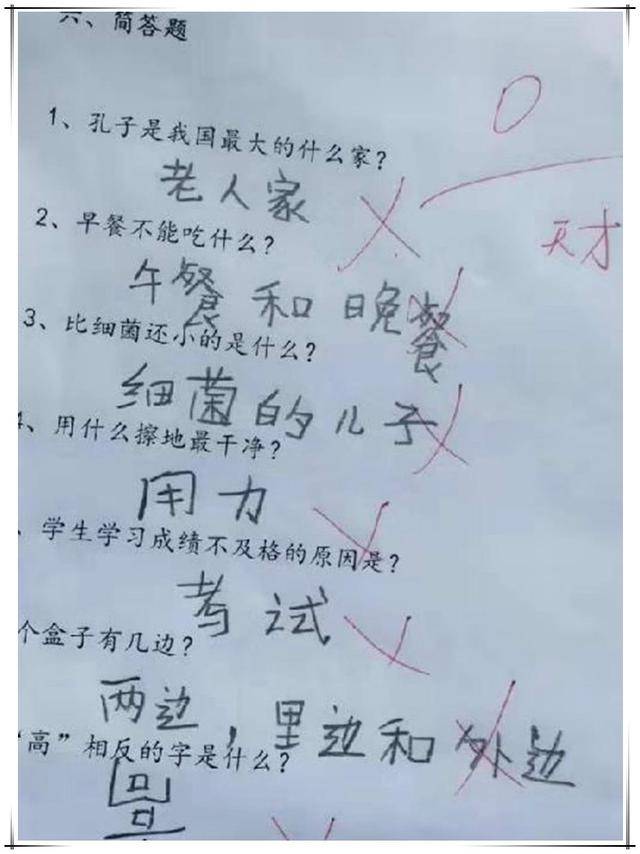 六、简答题
0
1、孔子是我国最大的什么家？
老人家
天才
2、早餐不能吃什么？
午餐和晚餐
3、比细菌还小的是什么？
细菌的儿子
、用什么擦地最干净？
用力
、学生学习成绩不及格的原因是？
考试
个盒子有几边？
两边，里边和外边
“高”相反的字是什么？